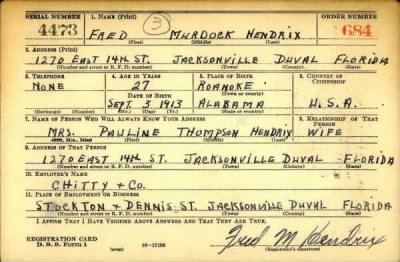 SERIAL NUMBER 1. NAME (Print) ORDER NUMBER
4473 FRED MURDOCK HENDRIX 684
(First) (Middle) (Last)
3
2. ADDRESS (Print)
1270 EAST 14TH ST. JACKSONVILLE DUVAL FLORIDA
(Number and street or R. F. D. number) (Town) (County) (State)
3. TELEPHONE 4. AGE IN YEARS 5. PLACE OF BIRTH 6. COUNTRY OF CITIZENSHIP
NONE 27 ROANOKE
DATE OF BIRTH (Town or county)
SEPT. 3 1913 ALABAMA U.S.A.
(Exchange) (Number) (Mo.) (Day) (Yr.) (State or country)
7. NAME OF PERSON WHO WILL ALWAYS KNOW YOUR ADDRESS 8. RELATIONSHIP OF THAT PERSON
MRS. PAULINE THOMPSON HENDRIX WIFE
(Mr., Mrs., Miss) (First) (Middle) (Last)
9. ADDRESS OF THAT PERSON
1270 EAST 14TH ST. JACKSONVILLE DUVAL FLORIDA
(Number and street or R. F. D. number) (Town) (County) (State)
10. EMPLOYER'S NAME
CHITTY + CO.
11. PLACE OF EMPLOYMENT OR BUSINESS
STOCKTON + DENNIS ST. JACKSONVILLE DUVAL FLORIDA
(Number and street or R. F. D. number) (Town) (County) (State)
I AFFIRM THAT I HAVE VERIFIED ABOVE ANSWERS AND THAT THEY ARE TRUE.
REGISTRATION CARD
D. S. S. Form 1 (over) 16-17105 Fred M Hendrix